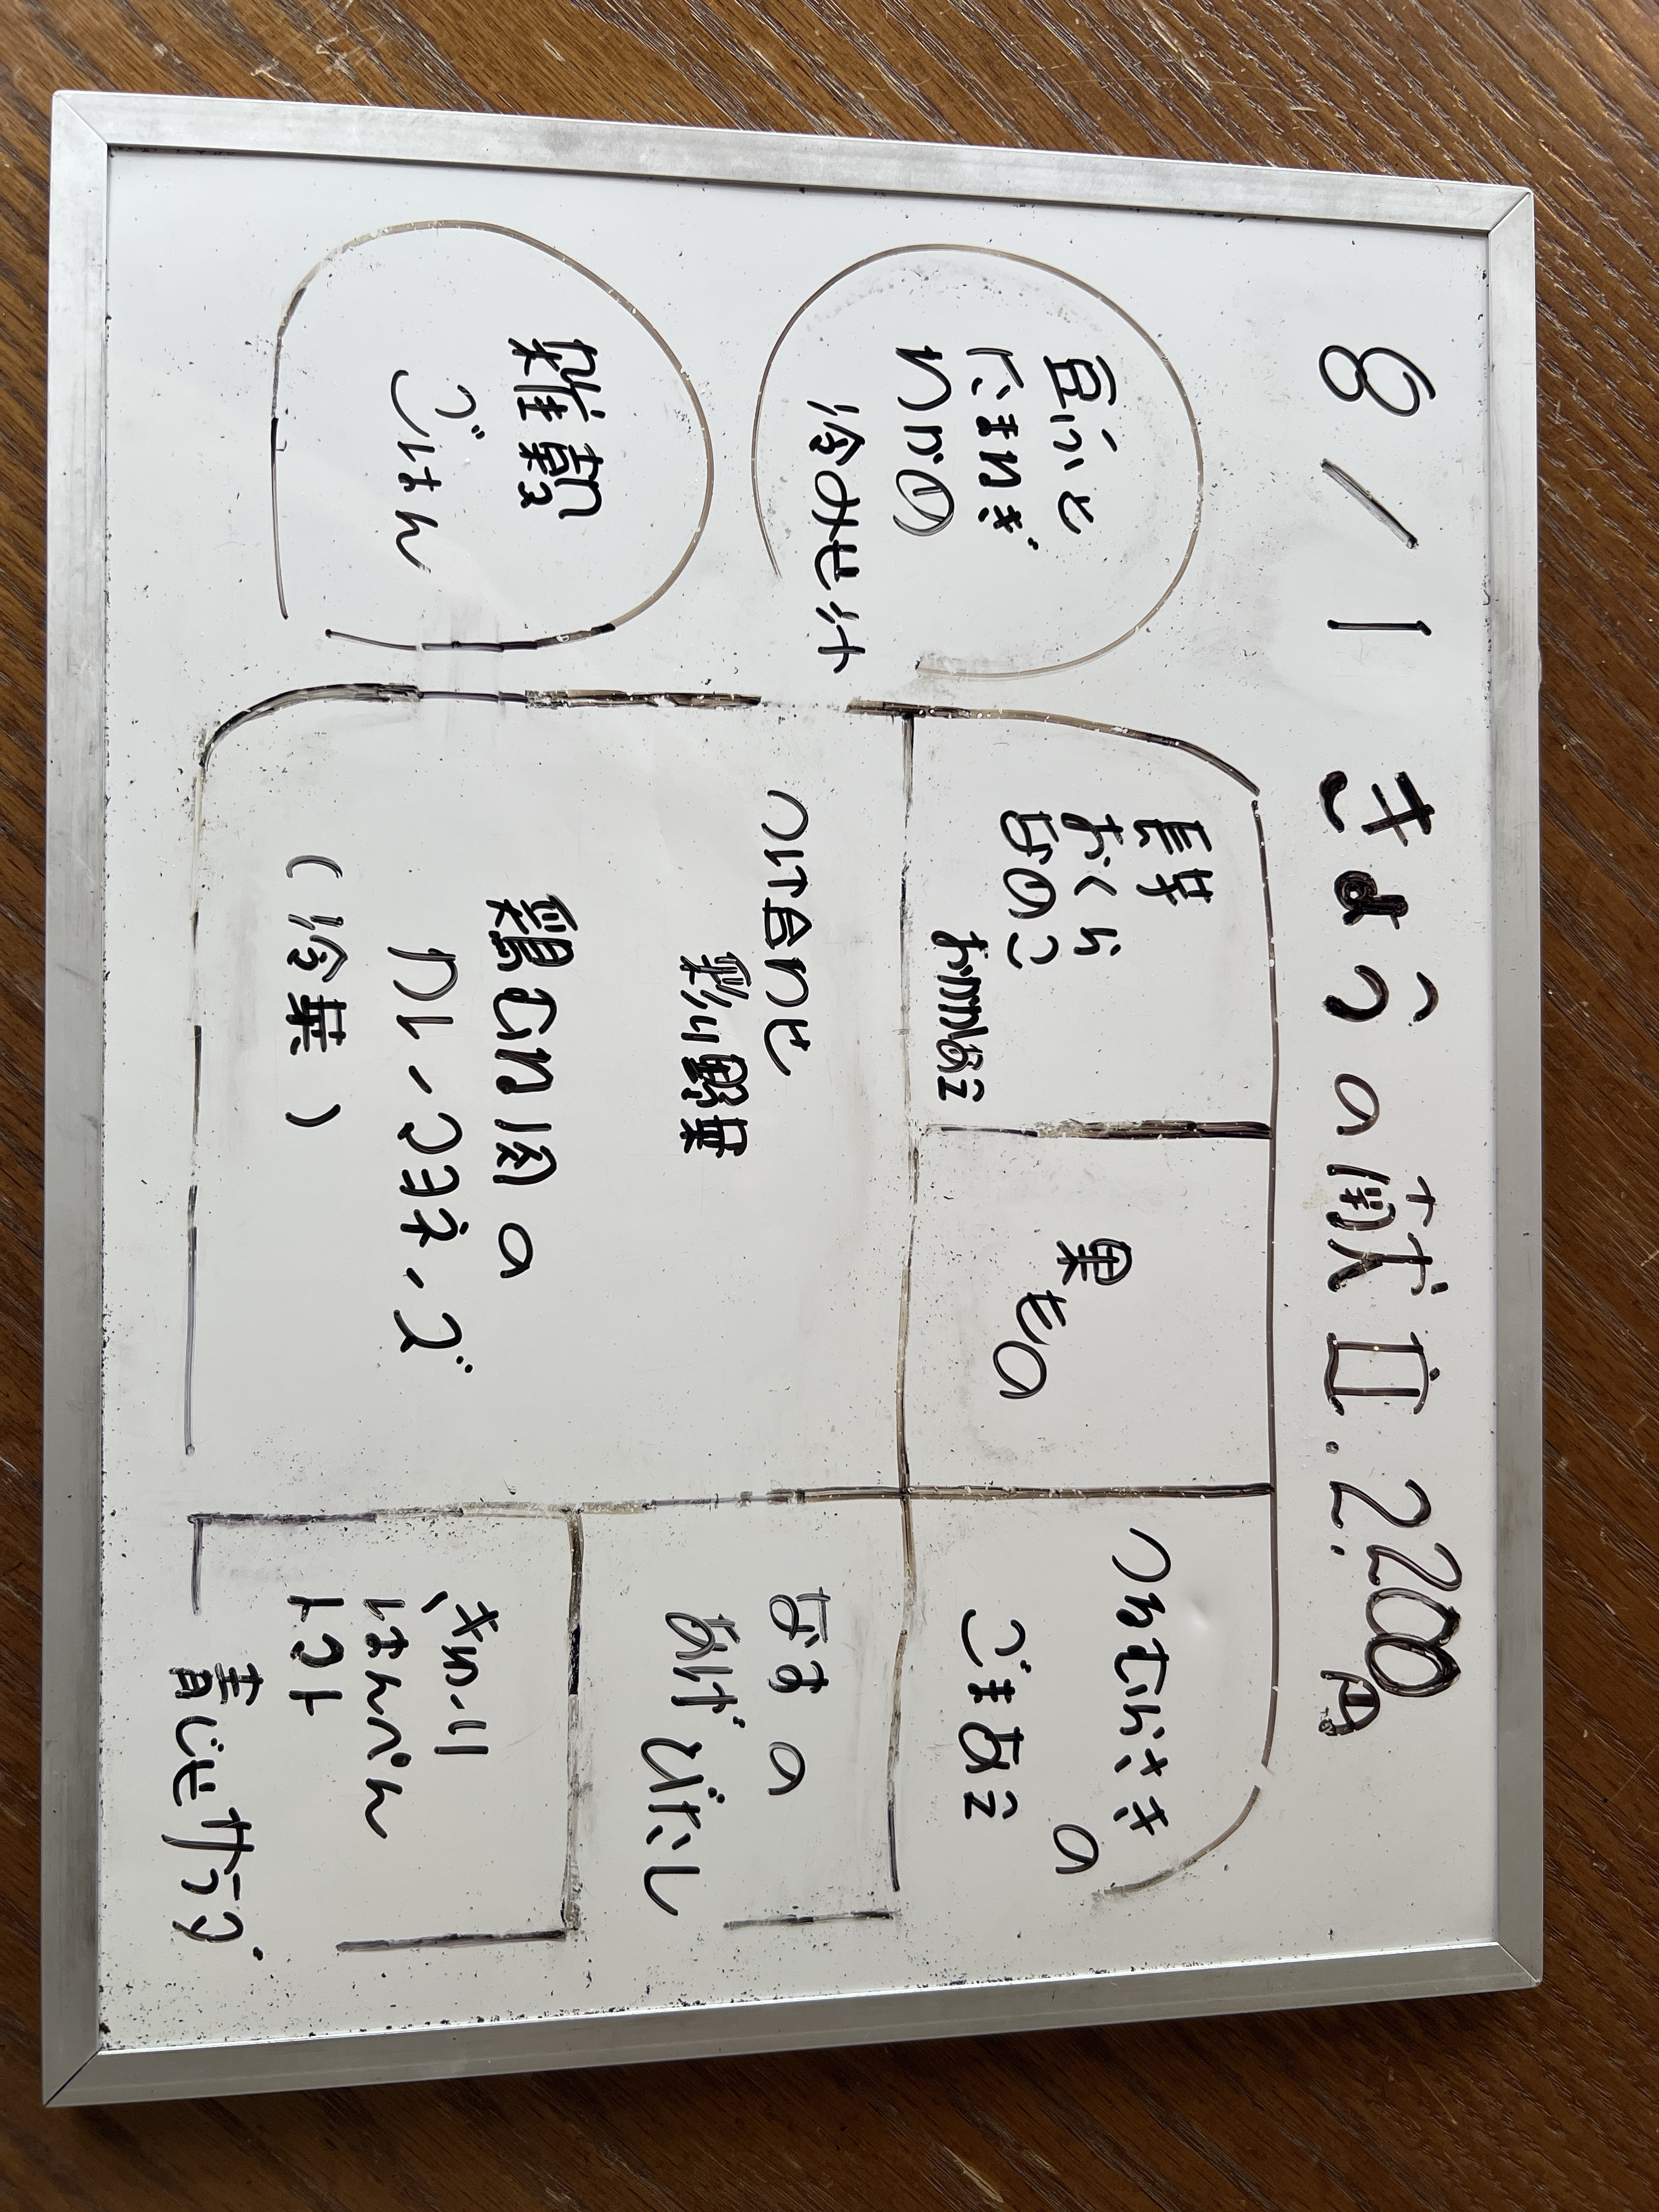 8/1 きょうの献立.2.200円
豆ふと
たまねぎ
わかめ
冷みそ汁
雑穀
ごはん
長芋
おくら
なめこ
おかかあえ
果もの
つるむらさきの
ごまあえ
つけ合わせ
彩り野菜
鶏むね肉の
カレーマヨネーズ
(冷菜)
なすの
あげびたし
きゅうり
はんぺん
トマト
青じそサラダ